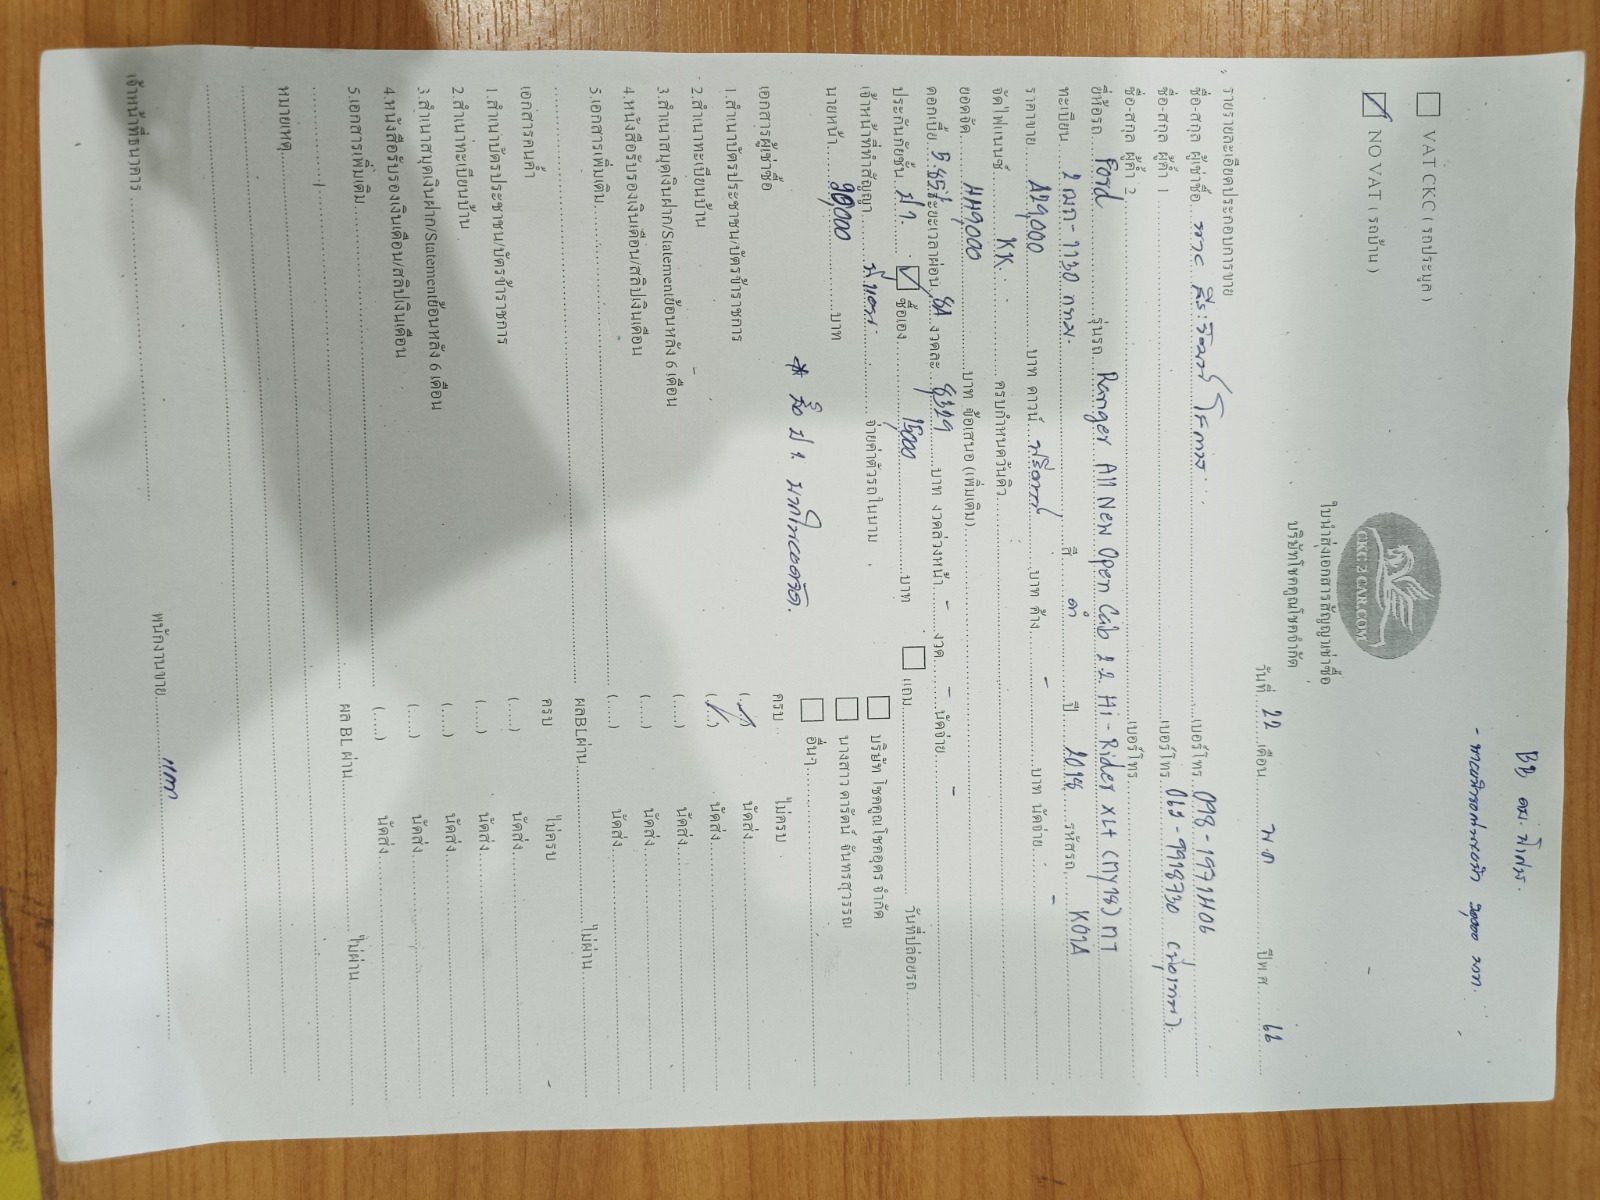 BB
☐ VAT CKC ( รถประมูล )
☑ NO VAT ( รถบ้าน )
CKC 2 CAR.COM
ใบนำส่งเอกสารสัญญาเช่าซื้อ
บริษัทโชคคูณโชคจำกัด
วันที่ 22 เดือน พ.ค ปีพ.ศ. 66
รายรายละเอียดประกอบการขาย
ชื่อ-สกุล ผู้เช่าซื้อ เบอร์โทร 098-1971406
ชื่อ-สกุล ผู้ค้ำ 1 เบอร์โทร 063-9918730
ชื่อ-สกุล ผู้ค้ำ 2 เบอร์โทร
ยี่ห้อรถ Ford รุ่นรถ Ranger All New Open Cab 2.2 Hi-Rider XLt (MY18) MT
ทะเบียน 2ฒถ-1130 กทม. สี ดำ ปี 2018 รหัสรถ K07A
ราคาขาย 429,000 บาท ดาวน์ ฟรีดาวน์ บาท ค้าง - บาท นัดจ่าย -
จัดไฟแนนซ์ KK ครบกำหนดวันคิว
ยอดจัด 449,000 บาท ข้อเสนอ (เพิ่มเติม)
ดอกเบี้ย ระยะเวลาผ่อน 84 งวดละ บาท งวดล่วงหน้า - งวด - นัดจ่าย -
ประกันภัยชั้น ป1. ☑ ซื้อเอง 15000 บาท ☐ แถม วันที่ปล่อยรถ
เจ้าหน้าที่ทำสัญญา จ่ายค่าตัวรถในนาม ☐ บริษัท โชคคูณโชคอุดร จำกัด
นายหน้า บาท ☐ นางสาว ดารัตน์ จันทรสุวรรณ
☐ อื่นๆ
* ซื้อ ป 1
เอกสารผู้เช่าซื้อ ครบ ไม่ครบ
1.สำเนาบัตรประชาชน/บัตรข้าราชการ (....) นัดส่ง
2.สำเนาทะเบียนบ้าน (....) นัดส่ง
3.สำเนาสมุดเงินฝาก/Statementย้อนหลัง 6 เดือน (....) นัดส่ง
4.หนังสือรับรองเงินเดือน/สลิปเงินเดือน (....) นัดส่ง
5.เอกสารเพิ่มเติม (....) นัดส่ง
ผลBLผ่าน ไม่ผ่าน
เอกสารคนค้ำ ครบ ไม่ครบ
1.สำเนาบัตรประชาชน/บัตรข้าราชการ (....) นัดส่ง
2.สำเนาทะเบียนบ้าน (....) นัดส่ง
3.สำเนาสมุดเงินฝาก/Statementย้อนหลัง 6 เดือน (....) นัดส่ง
4.หนังสือรับรองเงินเดือน/สลิปเงินเดือน (....) นัดส่ง
5.เอกสารเพิ่มเติม (....) นัดส่ง
ผล BL ผ่าน ไม่ผ่าน
หมายเหตุ
เจ้าหน้าที่ธนาคาร พนักงานขาย